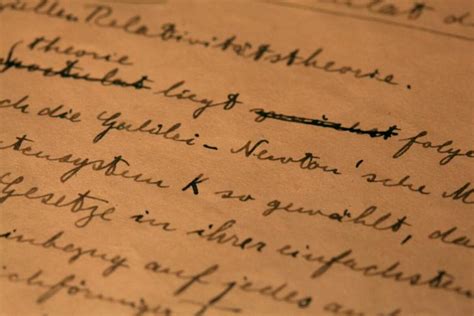 tulat d
iellen Relativitätstheorie.
theorie
postulat liegt zunächst folge
ch die Galilei-Newton'sche M
tensystem K so gewählt, da
Gesetze in ihrer einfachsten
inbezug auf jedes and
ichförmiger